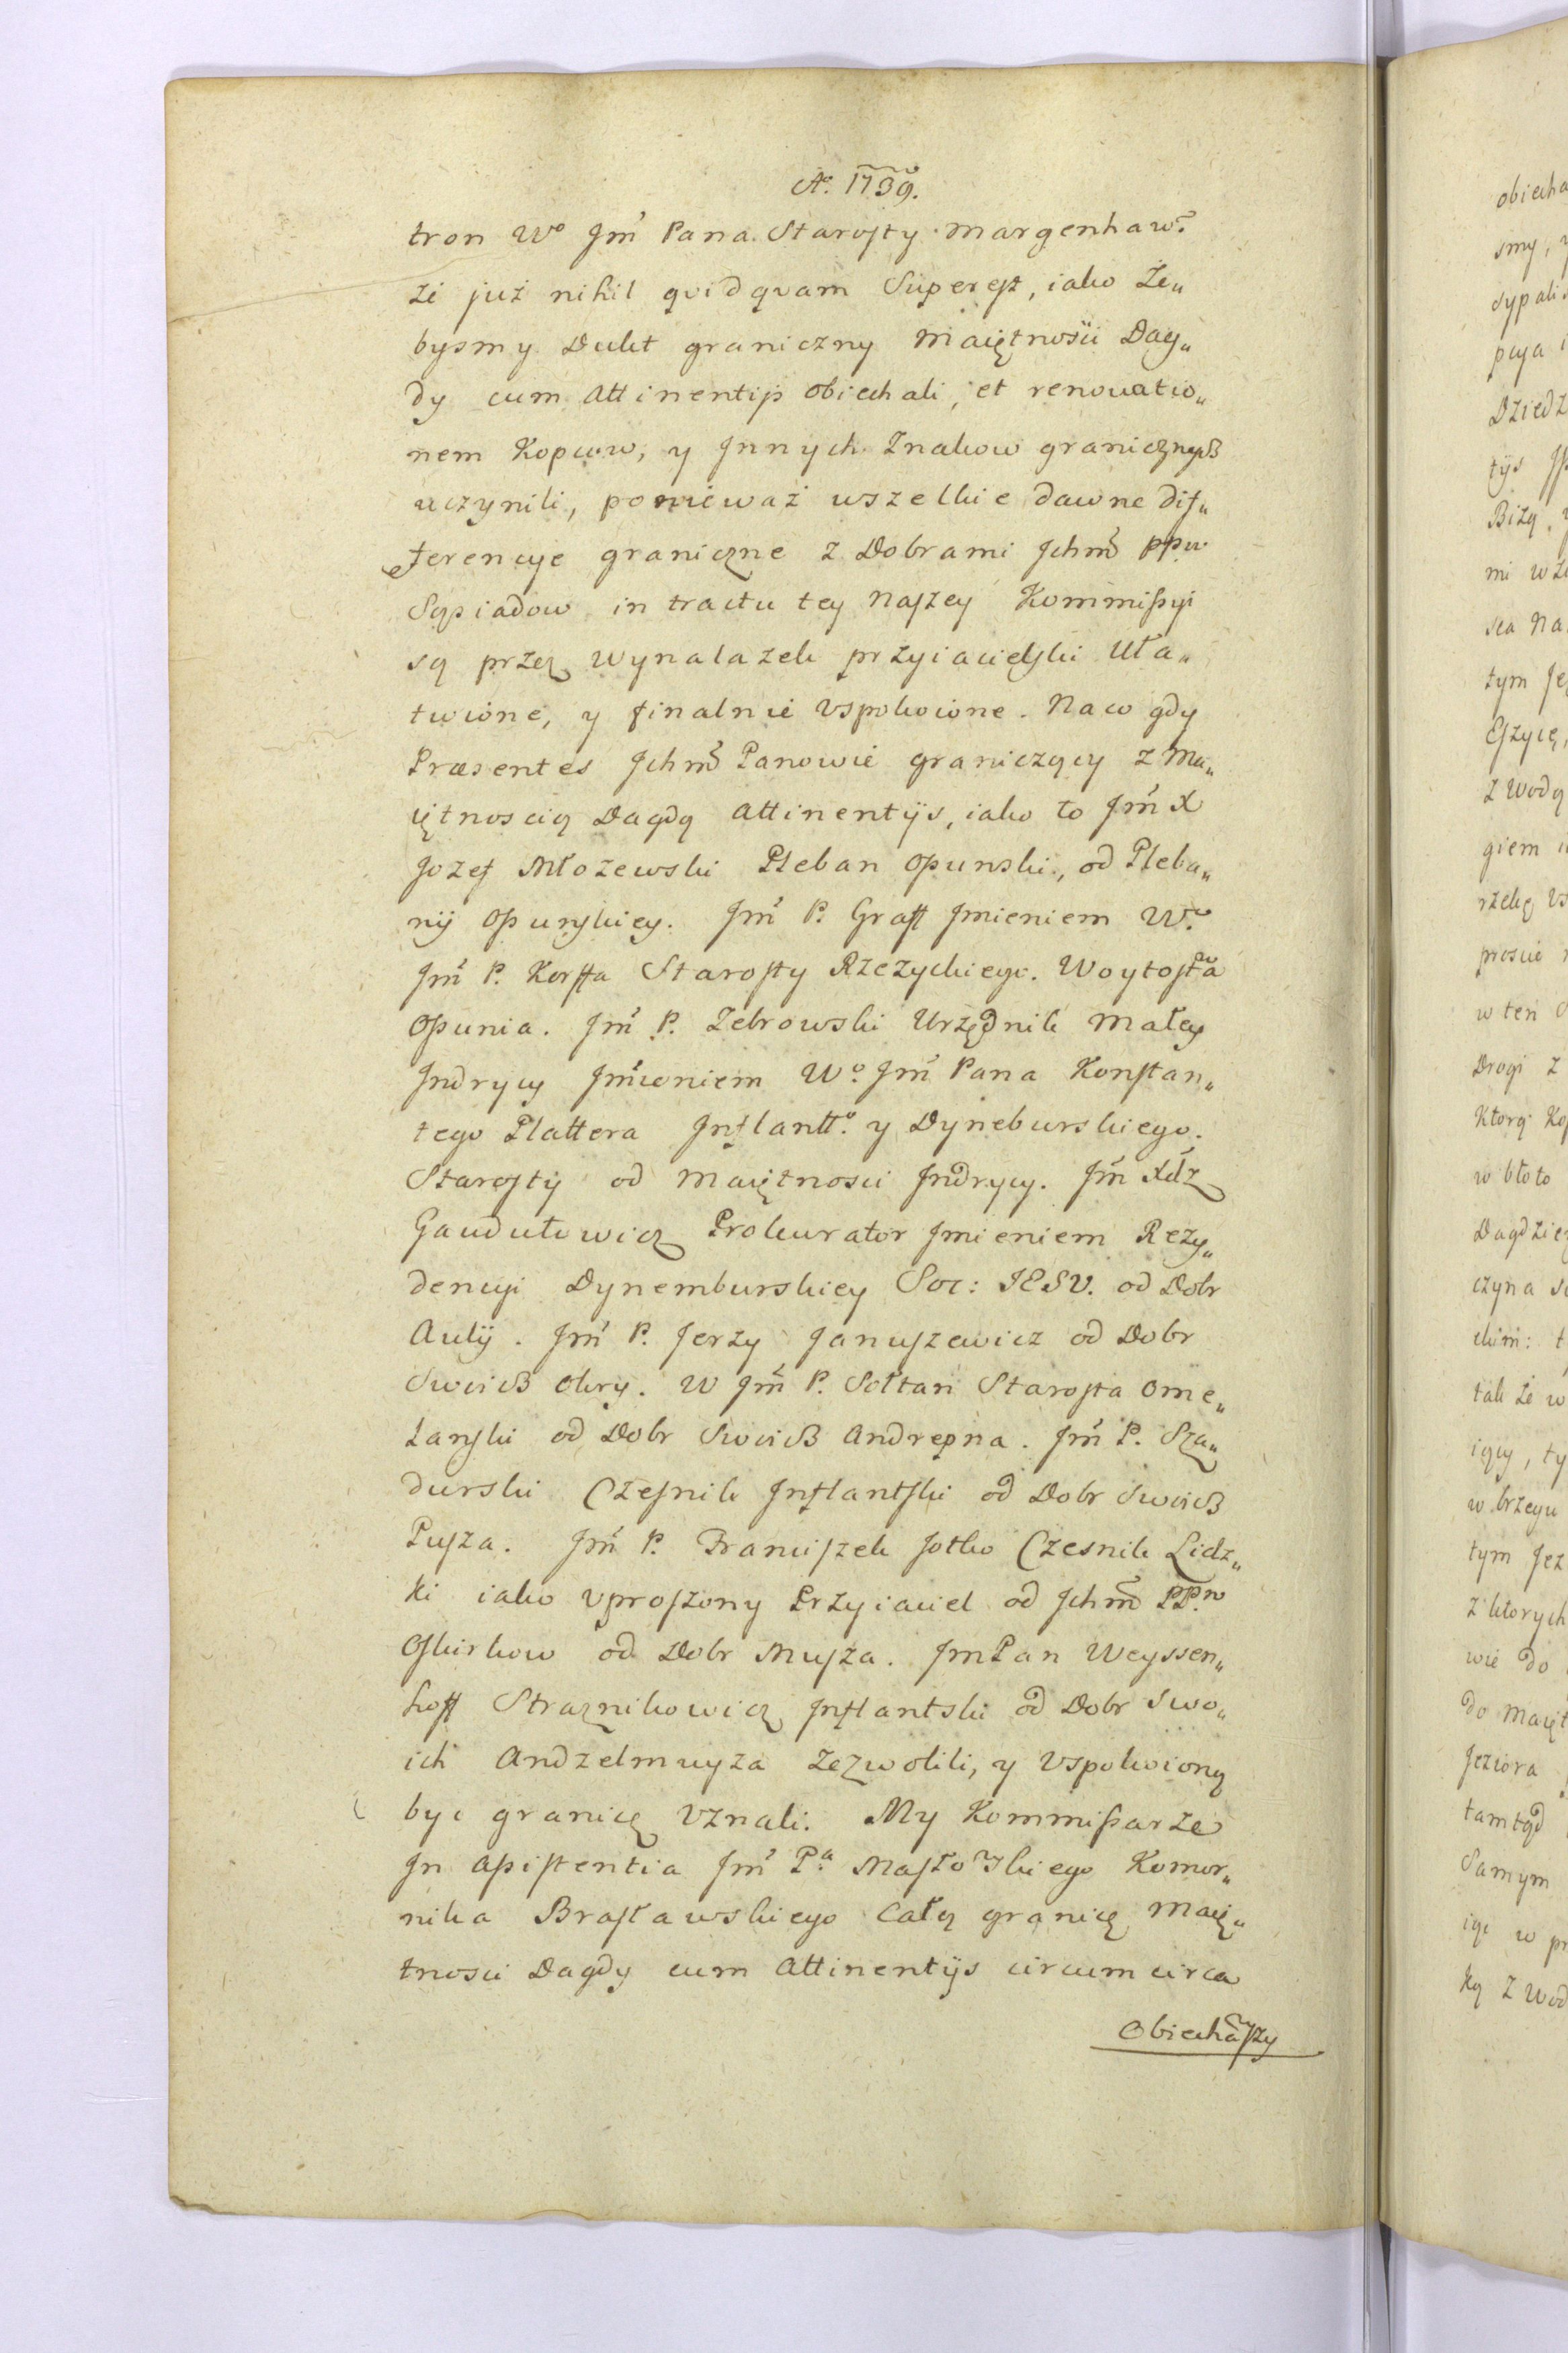 Aº. 1739.
tron Wº Jm̃ Pana Starosty Margenhaw:
że już nihil qvidqvam Superest, iako Że„
bysmy Dukt graniczny Maiętnosci Dag„
dy cum Attinentijs obiechali, et renouatio„
nem Kopcow, y Jnnych Znakow granicznych
uczynili, ponieważ wszelkie dawne dif„
ferencye graniczne z Dobrami Jchm̃ PPw
Sąsiadow in tractu tey Naszey Kommissyi
są przez wynalazek przyiacielski Uła„
twione, y finalnie Vspokoione. Na co gdy
Præsentes Jchm̃ Panowie graniczący z Ma„
iętnoscią Dagdą Attinentijs, iako to Jm̃ X
Jozef Młożewski Pleban Opunski, od Pleba„
nij Opunskiey. Jm̃ P. Graff Jmieniem Wº
Jm̃ P. Korffa Starosty Rzeżyckiego. Woytostwa
Opunia. Jm̃ P. Zebrowski Urzędnik Małey
Jndrycy Jmieniem Wº Jm̃ Pana Konstan„
tego Plattera Jnflanttº. y Dyneburskiego
Starosty od Maiętnosci Jndrycy. Jm̃ Xdz
Gaudutowicz Prokurator Jmieniem Rezy„
dencyi Dynemburskiey Soc: IESV. od Dobr
Aulij. Jm̃ P. Jerzy Januszewicz od Dobr
Swoich Okry. W Jm̃ P. Sołtan Starosta Ome„
lanski od Dobr Swoich Andrepna. Jm̃ P. Sza„
durski Czesnik Jnflantski od Dobr Swoich
Pusza. Jm̃ P. Franciszek Jotko Czesnik Lidz„
ki iako vproszony Przyiaciel od Jchm̃ PP.w
Oskirkow od Dobr Muyża. Jm Pan Weyssen„
hoff Straznikowicz Jnflantski od Dobr Swo„
ich Andzelmuyża Zezwolili, y Vspokoioną
byc granicę Vznali. My Kommissarze
Jn assistentia Jm̃ Pª Masłowskiego Komor„
nika Brasławskiego Całą granicę Maię„
tnosci Dagdy cum Attinentijs circum circa
Obiechawszy